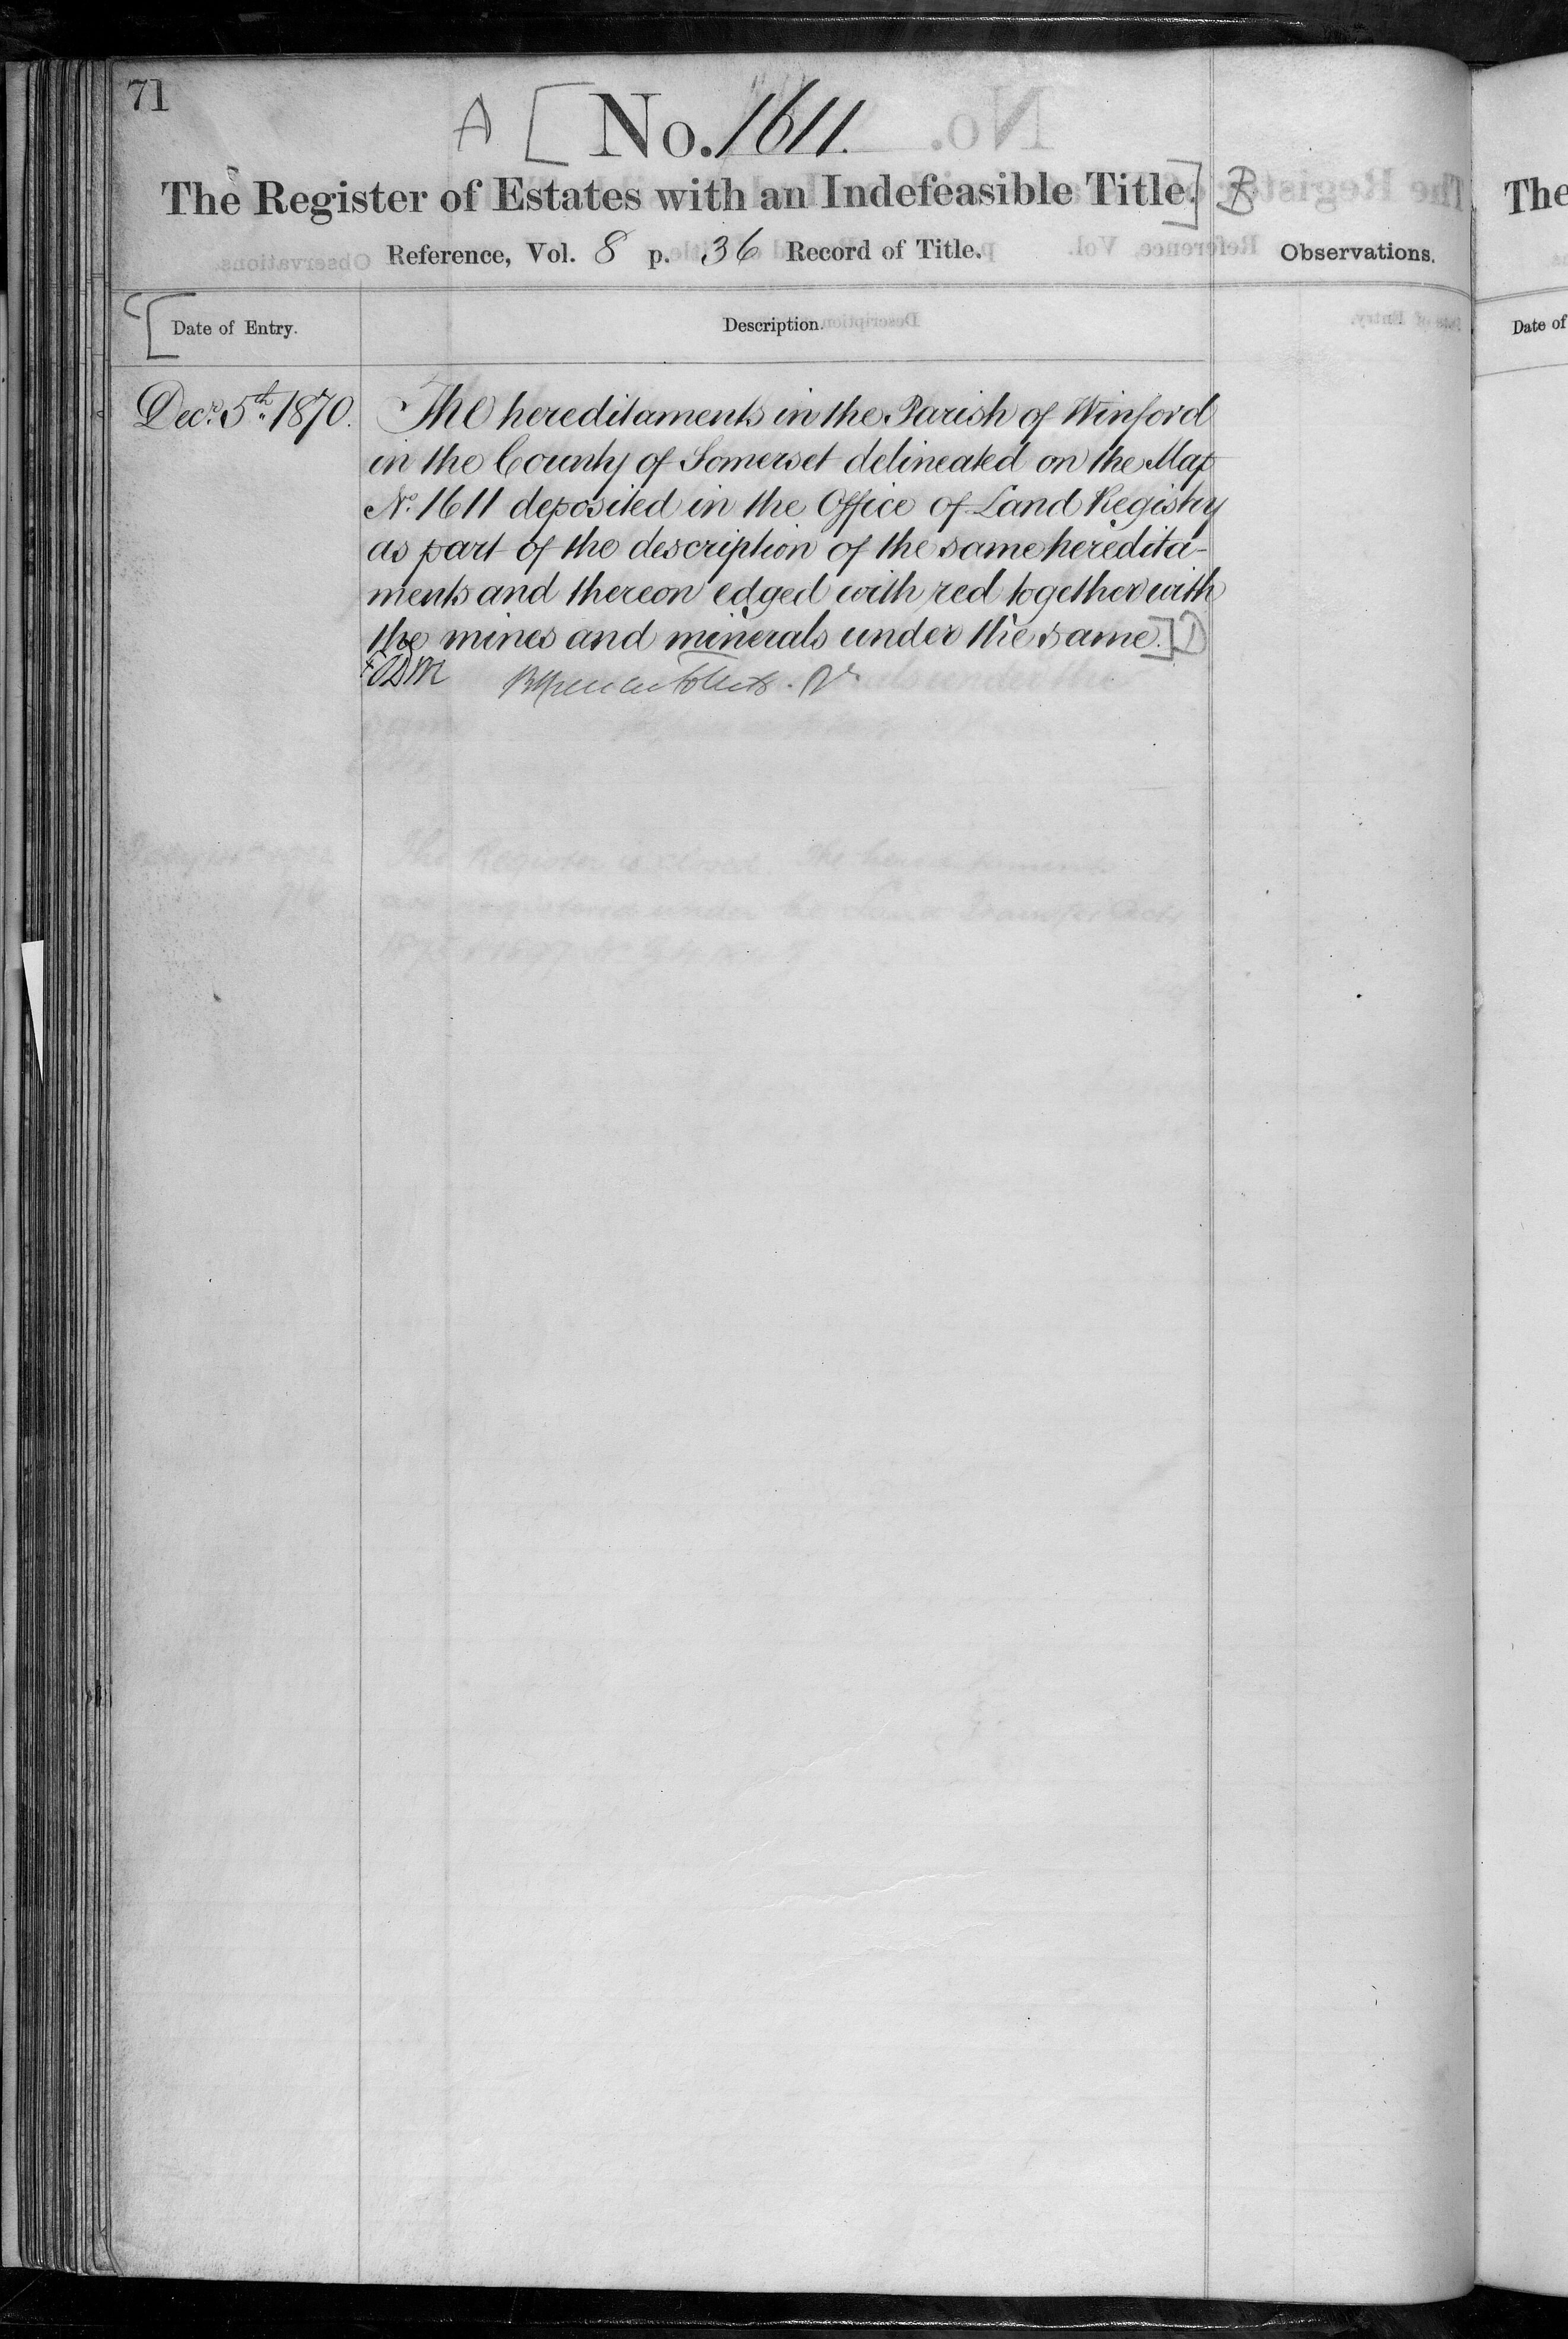 71
A [ No. 1611.
The Register of Estates with an Indefeasible Title.] B
Reference, Vol. 8 p. 36 Record of Title.
Observations.
[ Date of Entry.
Description.
Decr. 5th 1870.
The hereditaments in the Parish of Winford
in the County of Somerset delineated on the Map
No. 1611 deposited in the Office of Land Registry
as part of the description of the same heredita-
ments and thereon edged with red together with
the mines and minerals under the same.] D
The
Date of